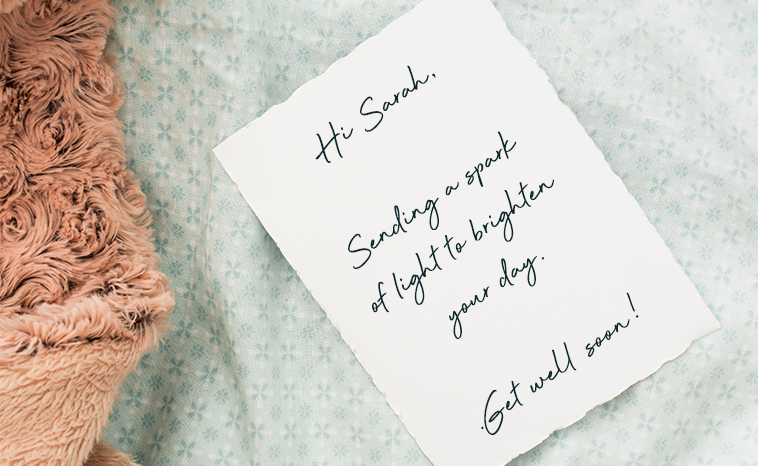 Hi Sarah,
Sending a spark
of light to brighten
your day.
Get well soon!